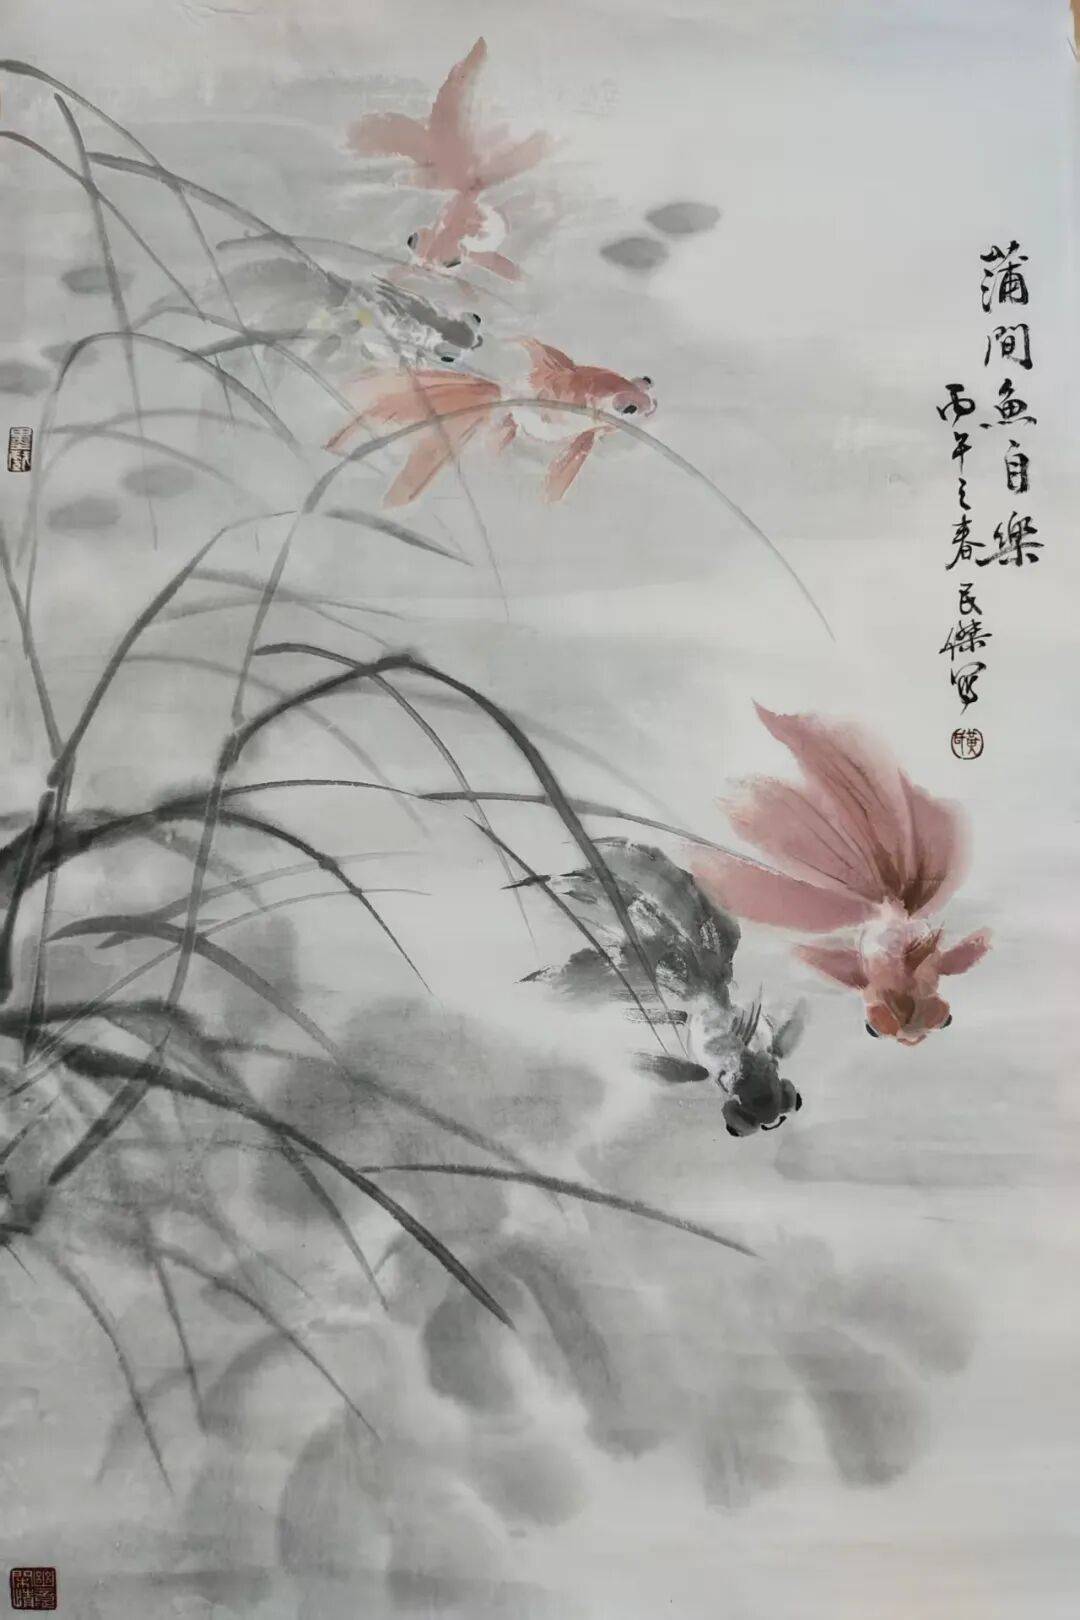 蒲間魚自樂
丙午之春民傑寫
黃